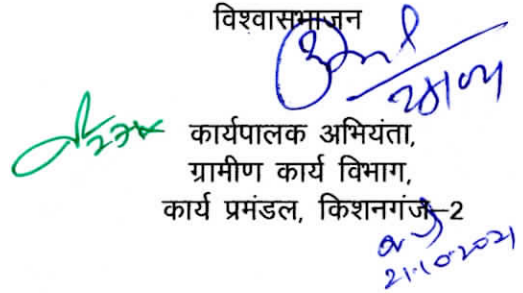 विश्वासभाजन
कार्यपालक अभियंता,
ग्रामीण कार्य विभाग,
कार्य प्रमंडल, किशनगंज–2
21.10.2021